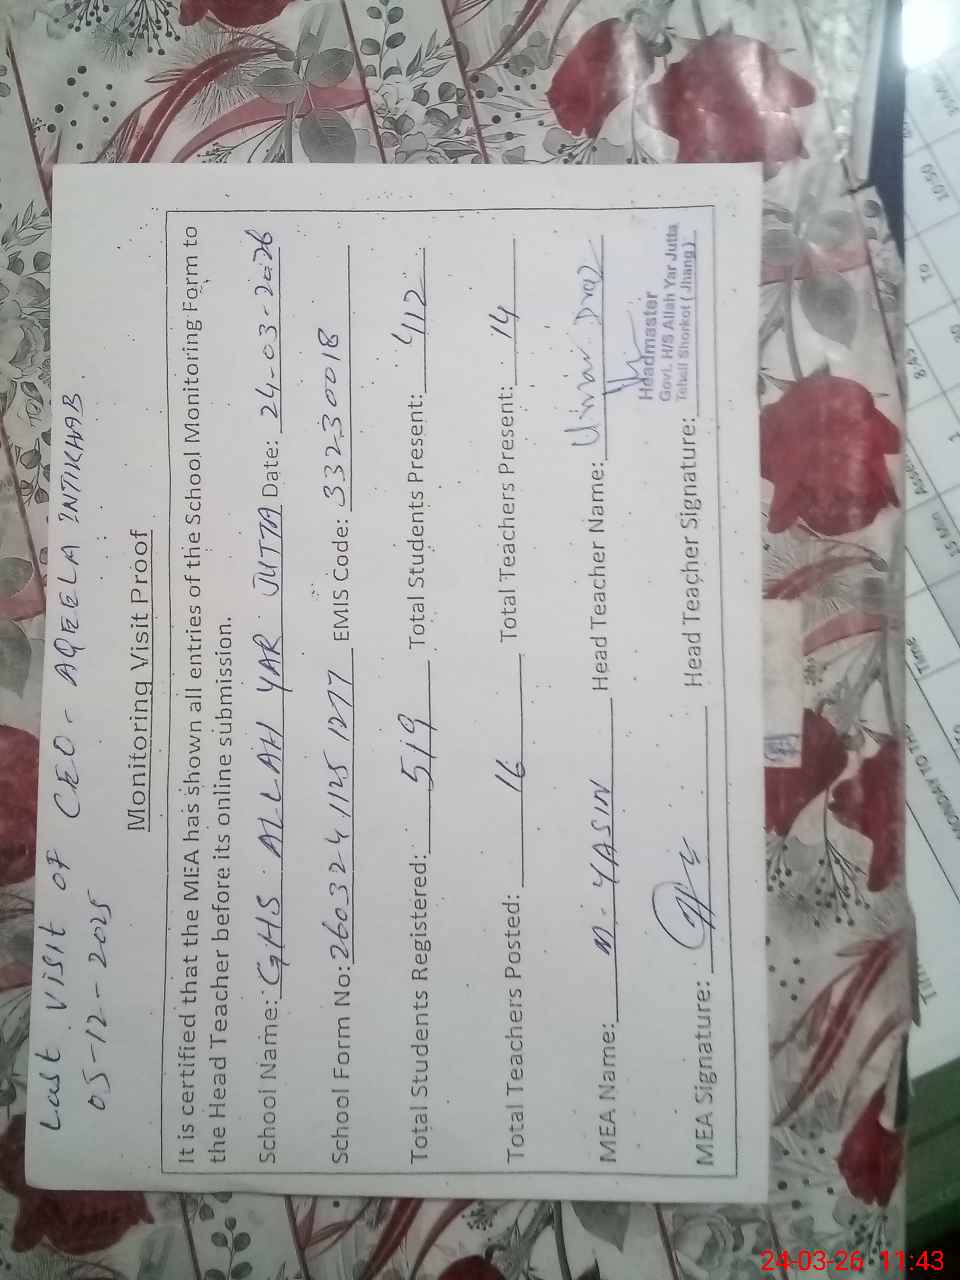 Last visit of CEO - AQEELA INTIKHAB
05-12-2025
Monitoring Visit Proof
It is certified that the MEA has shown all entries of the School Monitoring Form to
the Head Teacher before its online submission.
School Name: GHS ALLAH YAR JUTTA Date: 24-03-2026
School Form No: 2603241125 1277 EMIS Code: 33230018
Total Students Registered: 519 Total Students Present: 412
Total Teachers Posted: 16 Total Teachers Present: 14
MEA Name: M. YASIN Head Teacher Name: Umar Draz
MEA Signature: Head Teacher Signature:
Headmaster
Govt. H/S Allah Yar Jutta
Tehsil Shorkot (Jhang)
10:50
10
Assem
15 Min
Time
MONDAY TO
24-03-26 11:43